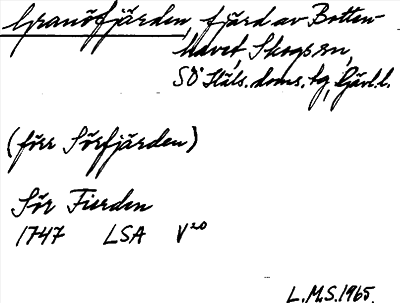 Granöfjärden, fjärd av Botten-
havet Skogs sn,
SÖ Häls. doms. bg, Gävl. l.
(förr Sörfjärden)
Sör Fierden
1747 LSA V20
L.M.S. 1965.